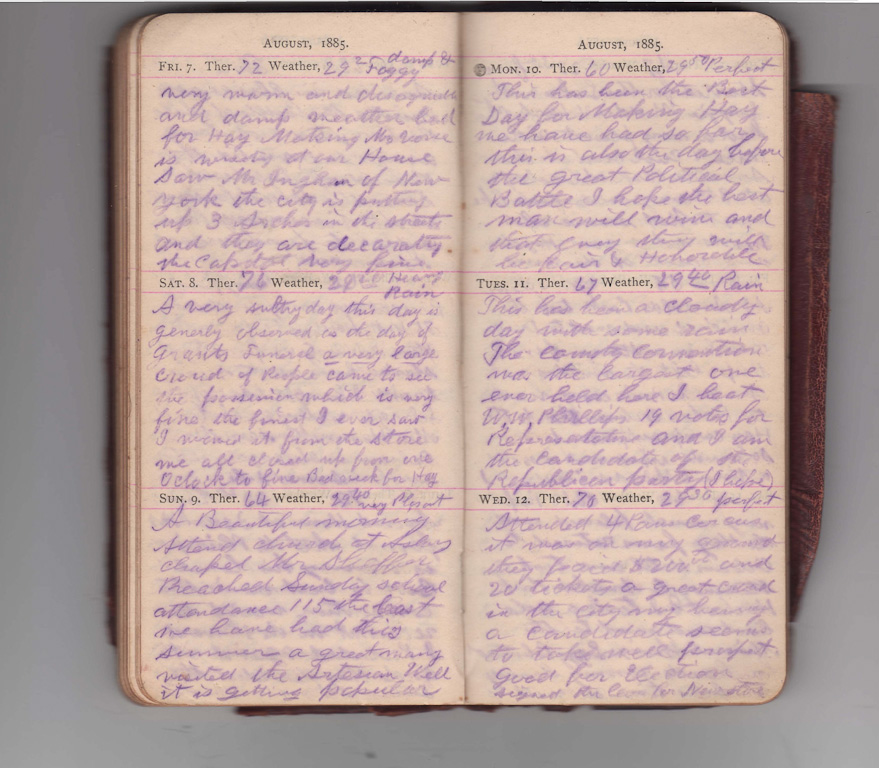 AUGUST, 1885.
FRI. 7. Ther. 72 Weather, 29 25 damp &
Foggy
very warm and
and damp weather bad
for Hay Making Mc
is at our House
Saw Mr Ingham of New
York the city is putting
up 3 Arches in the streets
and they are decorating
the Capitol very fine
SAT. 8. Ther. 76 Weather, 29 Heavy
Rain
A very sultry day this day is
generly observed as the day of
Grants Funeral a very large
Croud of People came to see
the which is very
fine the finest I ever saw
I it from the store
we all closed up from one
Oclock to five Bad week for Hay
SUN. 9. Ther. 64 Weather, 29.40 very Plesant
A Beautiful morning
Attend church at
chapel Mr. Sheffer
Preached Sunday school
attendance 115 the best
we have had this
summer a great many
visited the Artesian Well
it is getting popular
AUGUST, 1885.
MON. 10. Ther. 60 Weather, 29 50 Perfect
This has been the Best
Day for Making Hay
we have had so far
this is also the day before
the great Political
Battle I hope the best
man will wine and
that every thing will
be fair & Honorable
TUES. 11. Ther. 67 Weather, 29 40 Rain
This has been a cloudy
day with some rain
The county convention
was the largest one
ever held here I beat
W.W. Phillips 19 votes for
Representative and I am
the candidate of the
Republican party (I hope)
WED. 12. Ther. 70 Weather, 29 30 perfect
Attended 4 Paw Circus
it was on my ground
they paid $200 and
20 tickets a great croud
in the City my being
a candidate seems
to take well prospect
good for Election
signed the for New store